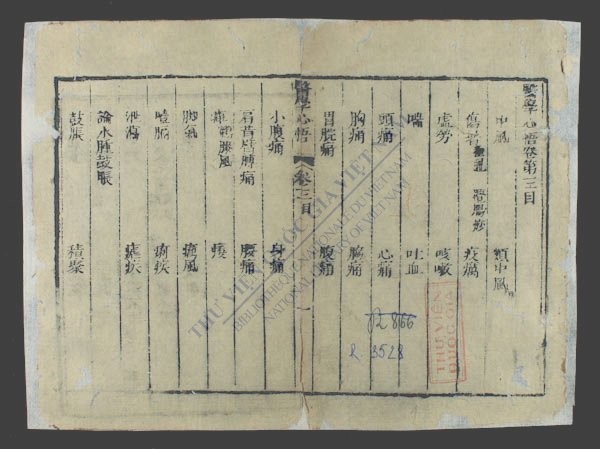 醫學心悟卷第三目
中風 類中風
傷暑 疫癘
虛勞 咳嗽
喘 吐血
頭痛 心痛
胸痛 脇痛
胃脘痛 腹痛
醫學心悟 卷三目 一
小腹痛 身痛
肩背臂膊痛 腰痛
膝風 痿
脚氣 痛風
噎膈 痢疾
泄瀉 瘧疾
論水腫鼓脹
鼓脹 積聚
THƯ VIỆN QUỐC GIA VIỆT NAM
BIBLIOTHÈQUE NATIONALE DU VIETNAM
NATIONAL LIBRARY OF VIETNAM
R. 3528
THƯ VIỆN
QUỐC GIA